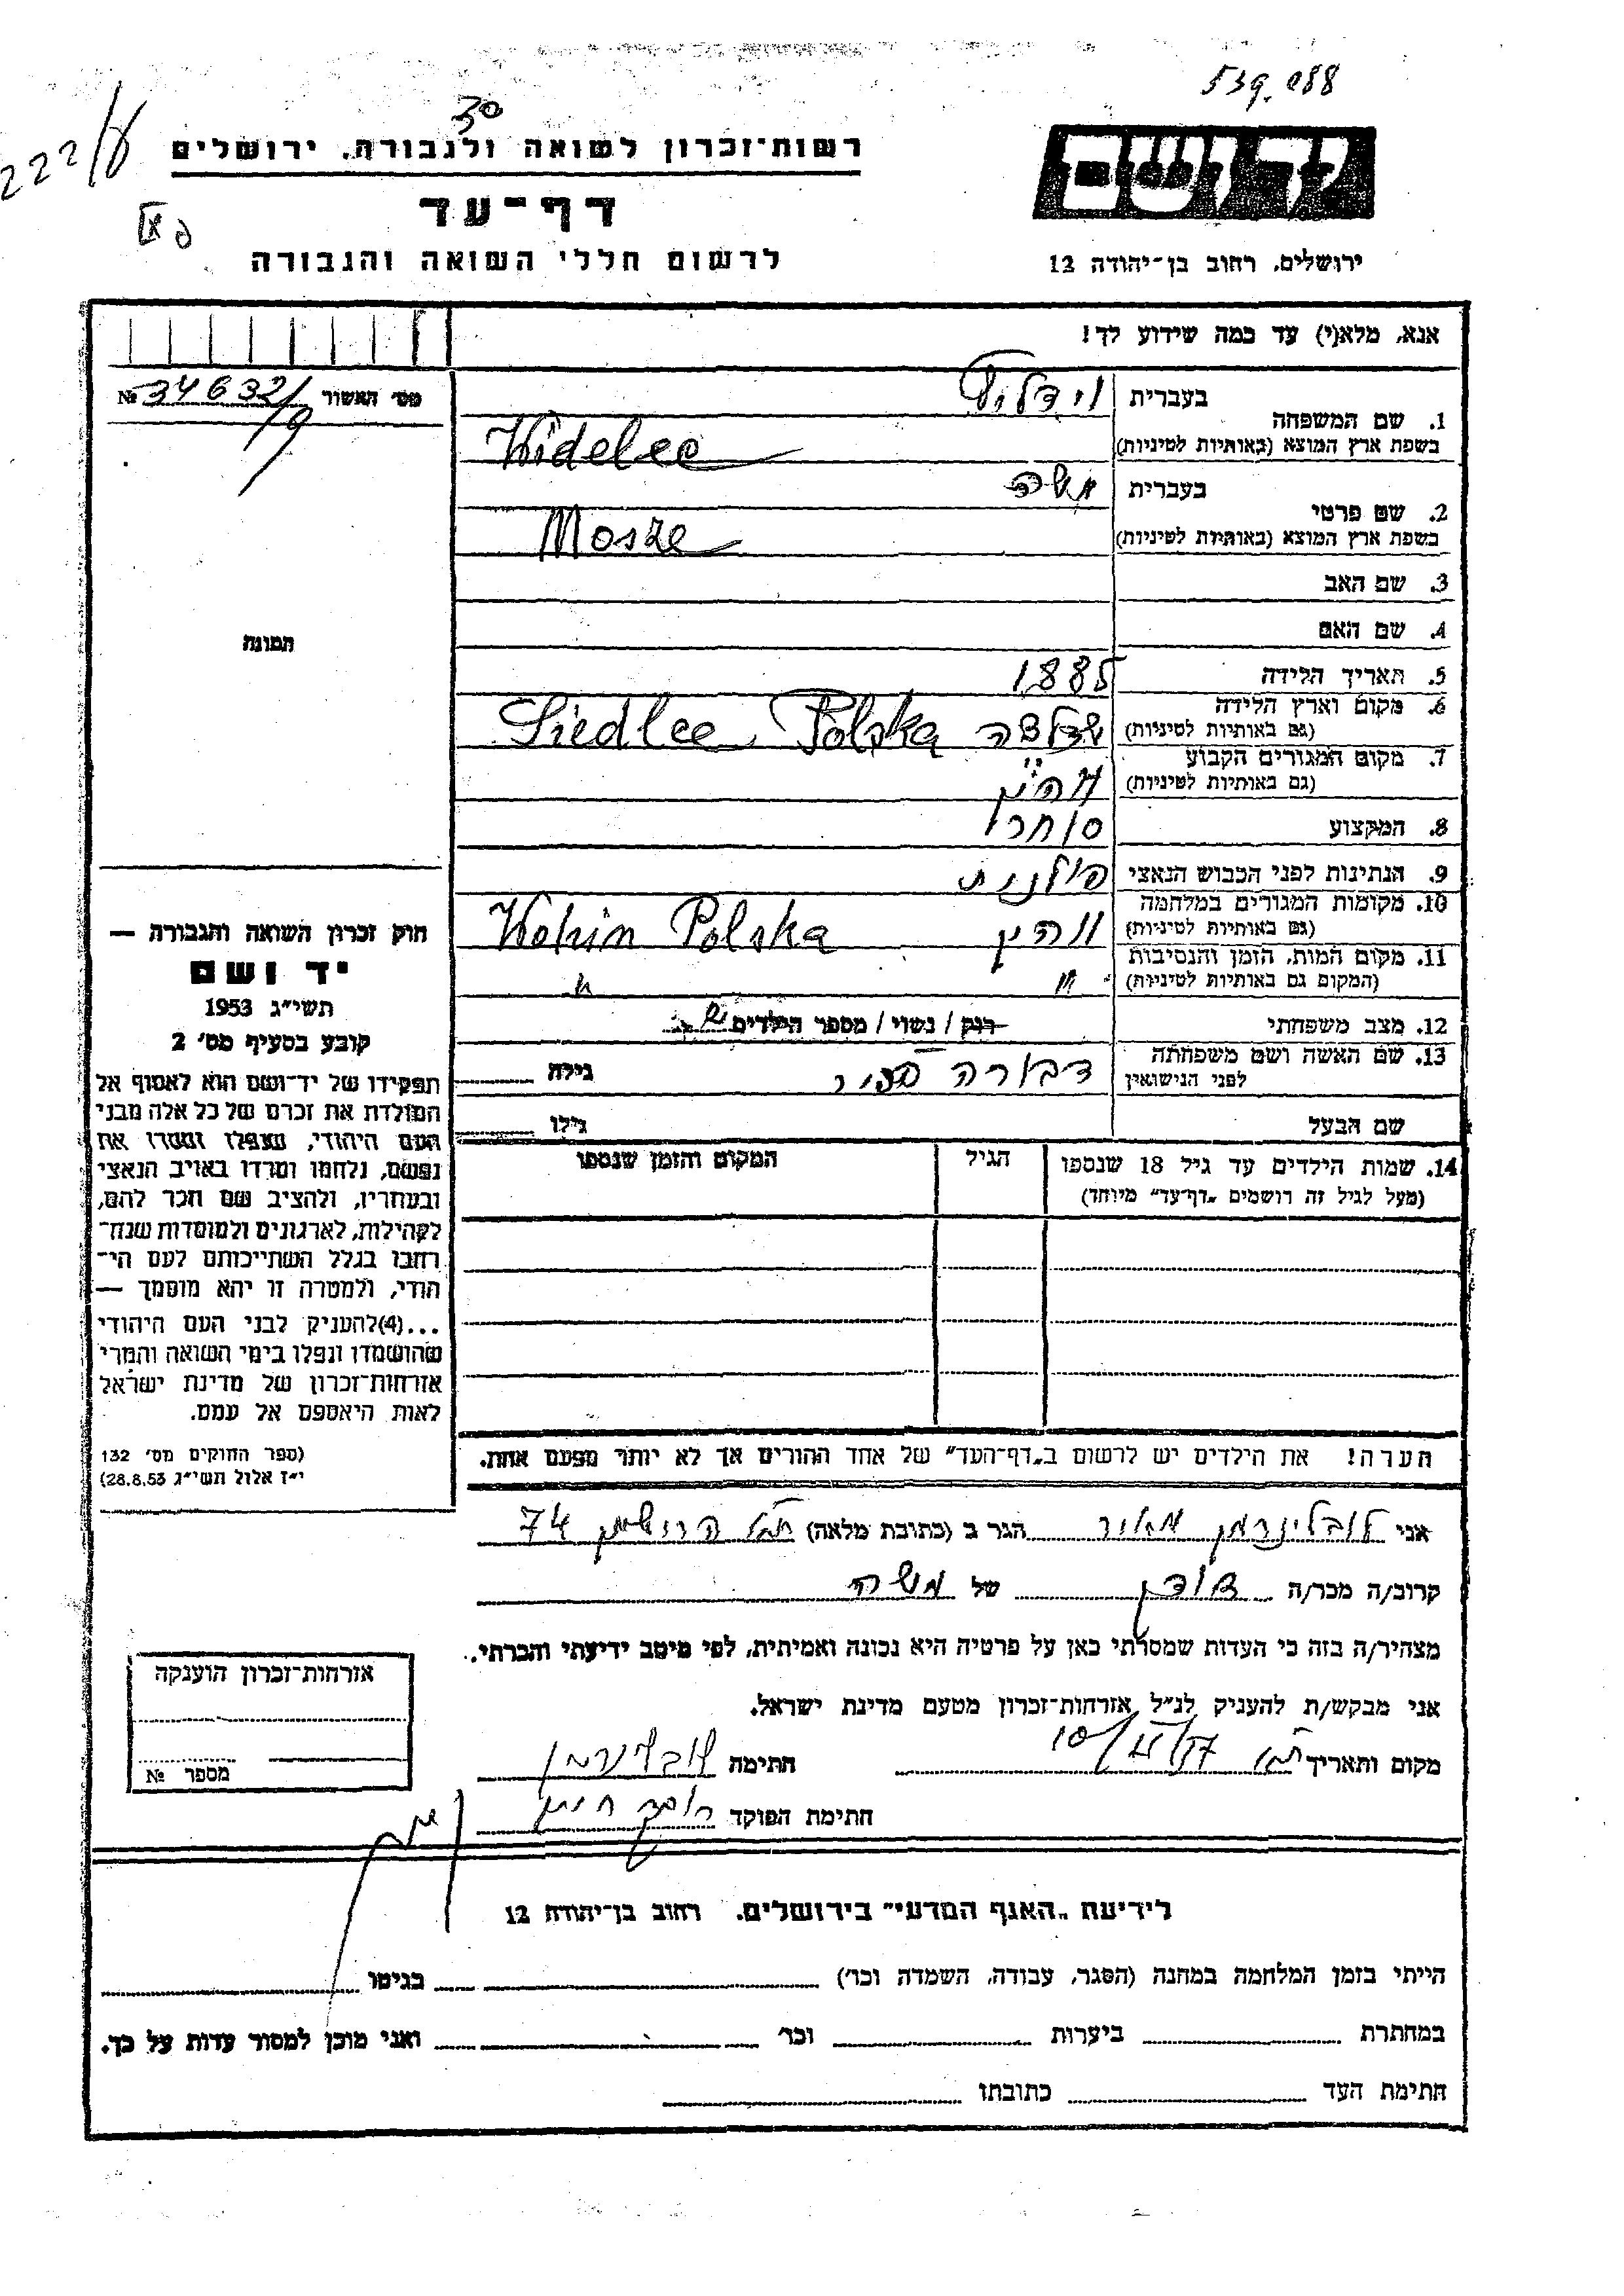 539.088
30
222/8
רשות-זכרון לשואה ולגבורה, ירושלים
דף-עד
לרשום חללי השואה והגבורה
יד ושם
ירושלים, רחוב בן-יהודה 12
אנא, מלא(י) עד כמה שידוע לך!
מס' האשור № 346321
19
1. שם המשפחה
בעברית
בשפת ארץ המוצא (באותיות לטיניות) Widelec
2. שם פרטי
בעברית משה
בשפת ארץ המוצא (באותיות לטיניות) Mosze
3. שם האב
4. שם האם
5. תאריך הלידה 1885
6. מקום וארץ הלידה
(גם באותיות לטיניות) שדלצה Siedlce Polska
7. מקום המגורים הקבוע
(גם באותיות לטיניות) והין
8. המקצוע סוחר
9. הנתינות לפני הכבוש הנאצי פולנית
10. מקומות המגורים במלחמה
(גם באותיות לטיניות) ווהין Wohin Polska
11. מקום המות, הזמן והנסיבות
(המקום גם באותיות לטיניות) " "
12. מצב משפחתי רוק / נשוי / מספר הילדים
13. שם האשה ושם משפחתה
לפני הנישואין דבורה גילה
שם הבעל גילו
14. שמות הילדים עד גיל 18 שנספו הגיל המקום והזמן שנספו
(מעל לגיל זה רושמים „דף-עד" מיוחד)
הערה! את הילדים יש לרשום ב„דף-העד" של אחד ההורים אך לא יותר מפעם אחת.
התמונה
חוק זכרון השואה והגבורה —
יד ושם
תשי"ג 1953
קובע בסעיף מס' 2
תפקידו של יד-ושם הוא לאסוף אל
המולדת את זכרם של כל אלה מבני
העם היהודי, שנפלו ומסרו את
נפשם, נלחמו ומרדו באויב הנאצי
ובעוזריו, ולהציב שם וזכר להם,
לקהילות, לארגונים ולמוסדות שנח-
רבו בגלל השתייכותם לעם הי-
הודי, ולמטרה זו יהא מוסמך —
...(4) להעניק לבני העם היהודי
שהושמדו ונפלו בימי השואה והמרי
אזרחות-זכרון של מדינת ישראל
לאות היאספם אל עמם.
(ספר החוקים מס' 132
י"ז אלול תשי"ג 28.8.53)
אני לובלינרמן מאיר הגר ב (כתובת מלאה) 74
קרוב/ה מכר/ה של משה
מצהיר/ה בזה כי העדות שמסרתי כאן על פרטיה היא נכונה ואמיתית, לפי מיטב ידיעתי והכרתי.
אני מבקש/ת להעניק לנ"ל אזרחות-זכרון מטעם מדינת ישראל.
מקום ותאריך חתימה
חתימת הפוקד
אזרחות-זכרון הוענקה
מספר №
לידיעת „האגף המדעי" בירושלים. רחוב בן-יהודה 12
הייתי בזמן המלחמה במחנה (הסגר, עבודה, השמדה וכו') בגיטו
במחתרת ביערות וכו' ואני מוכן למסור עדות על כך.
חתימת העד כתובתו